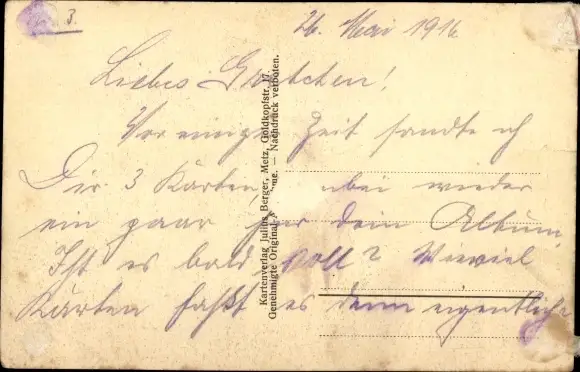 3.
26. Mai 1916
Liebes Gretchen!
Vor einiger Zeit sandte ich
Dir 3 Karten, anbei wieder
ein paar für dein Album.
Ist es bald voll? Wieviel
Karten faßt es denn eigentlich?
Kartenverlag Julius Berger, Metz, Goldkopfstr. 17.
Genehmigte Original — Nachdruck verboten.